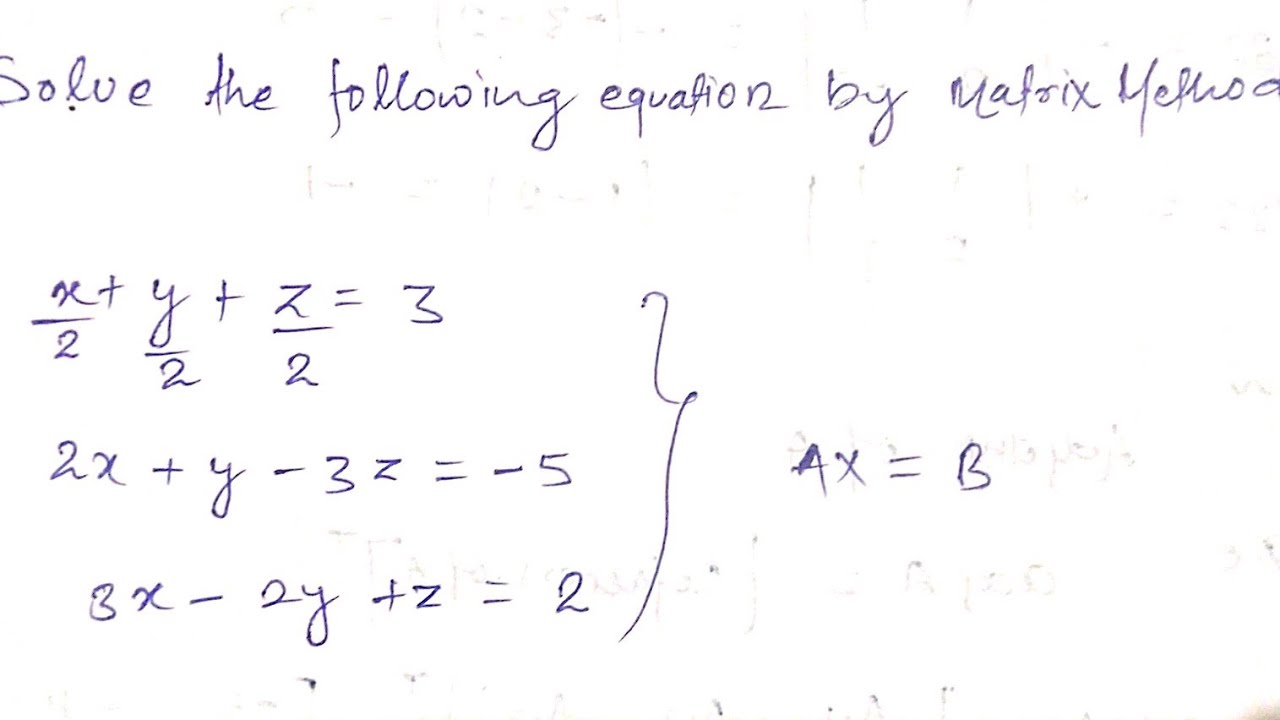 Solve the following equation by Matrix Method
x/2 + y/2 + z/2 = 3
2x + y - 3z = -5
AX = B
3x - 2y + z = 2